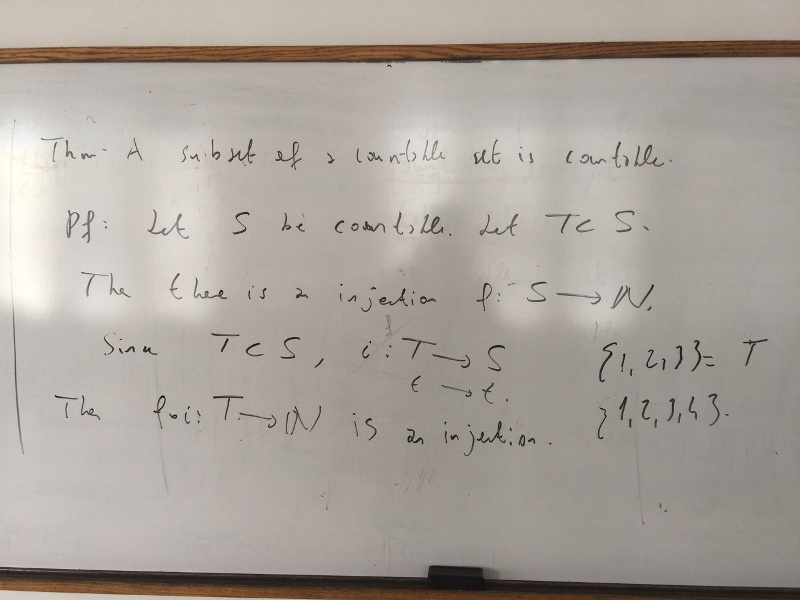 Thm. A subset of a countable set is countable.
Pf: Let S be countable. Let T ⊂ S.
The thee is an injection f: S → ℕ.
Since T ⊂ S, i: T → S
t → t.
{1,2,3} = T
{1,2,3,4}.
The f∘i: T → ℕ is an injection.